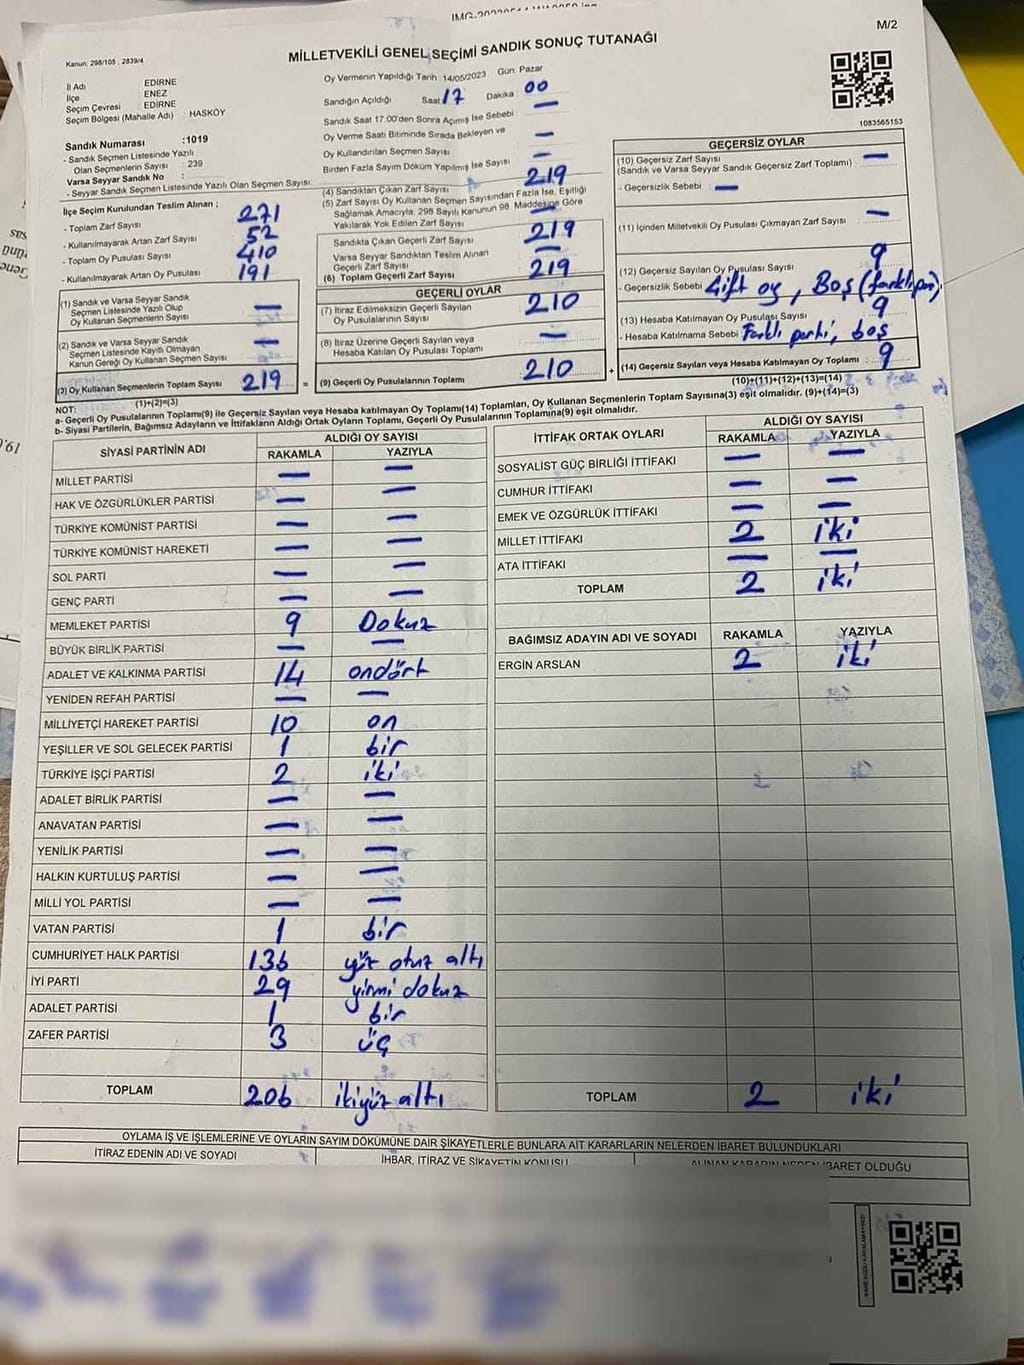 M/2
MİLLETVEKİLİ GENEL SEÇİMİ SANDIK SONUÇ TUTANAĞI
Kanun: 298/105 , 2839/4
İl Adı EDİRNE
İlçe ENEZ
Seçim Çevresi : EDİRNE
Seçim Bölgesi (Mahalle Adı) : HASKÖY
Oy Vermenin Yapıldığı Tarih : 14/05/2023 Gün: Pazar
Sandığın Açıldığı Saat 17 Dakika : 00
Sandık Saat 17:00'den Sonra Açımış İse Sebebi : —
Oy Verme Saati Bitiminde Sırada Bekleyen ve
Oy Kullandırılan Seçmen Sayısı —
Birden Fazla Sayım Döküm Yapılmış İse Sayısı —
1083565153
Sandık Numarası :1019
- Sandık Seçmen Listesinde Yazılı
Olan Seçmenlerin Sayısı : 239
Varsa Seyyar Sandık No :
- Seyyar Sandık Seçmen Listesinde Yazılı Olan Seçmen Sayısı:
İlçe Seçim Kurulundan Teslim Alınan ;
- Toplam Zarf Sayısı 271
- Kullanılmayarak Artan Zarf Sayısı 52
- Toplam Oy Pusulası Sayısı 410
- Kullanılmayarak Artan Oy Pusulası 191
(1) Sandık ve Varsa Seyyar Sandık
Seçmen Listesinde Yazılı Olup
Oy Kullanan Seçmenlerin Sayısı —
(2) Sandık ve Varsa Seyyar Sandık
Seçmen Listesinde Kayıtlı Olmayan
Kanun Gereği Oy Kullanan Seçmen Sayısı —
(3) Oy Kullanan Seçmenlerin Toplam Sayısı 219 =
(1)+(2)=(3)
(4) Sandıktan Çıkan Zarf Sayısı 219
(5) Zarf Sayısı Oy Kullanan Seçmen Sayısından Fazla İse, Eşitliği
Sağlamak Amacıyla; 298 Sayılı Kanunun 98. Maddesine Göre
Yakılarak Yok Edilen Zarf Sayısı —
Sandıkta Çıkan Geçerli Zarf Sayısı 219
Varsa Seyyar Sandıktan Teslim Alınan
Geçerli Zarf Sayısı —
(6) Toplam Geçerli Zarf Sayısı 219
GEÇERLİ OYLAR
(7) İtiraz Edilmeksizin Geçerli Sayılan
Oy Pusulalarının Sayısı 210
(8) İtiraz Üzerine Geçerli Sayılan veya
Hesaba Katılan Oy Pusulası Toplamı —
(9) Geçerli Oy Pusulalarının Toplamı 210 +
GEÇERSİZ OYLAR
(10) Geçersiz Zarf Sayısı —
(Sandık ve Varsa Seyyar Sandık Geçersiz Zarf Toplamı)
- Geçersizlik Sebebi : —
(11) İçinden Milletvekili Oy Pusulası Çıkmayan Zarf Sayısı —
(12) Geçersiz Sayılan Oy Pusulası Sayısı 9
- Geçersizlik Sebebi Çift oy, Boş
(13) Hesaba Katılmayan Oy Pusulası Sayısı : 9
- Hesaba Katılmama Sebebi : Farklı parti, boş
(14) Geçersiz Sayılan veya Hesaba Katılmayan Oy Toplamı : 9
(10)+(11)+(12)+(13)=(14)
NOT:
a- Geçerli Oy Pusulalarının Toplamı(9) ile Geçersiz Sayılan veya Hesaba katılmayan Oy Toplamı(14) Toplamları, Oy Kullanan Seçmenlerin Toplam Sayısına(3) eşit olmalıdır. (9)+(14)=(3)
b- Siyasi Partilerin, Bağımsız Adayların ve İttifakların Aldığı Ortak Oyların Toplamı, Geçerli Oy Pusulalarının Toplamına(9) eşit olmalıdır.
SİYASİ PARTİNİN ADI ALDIĞI OY SAYISI
RAKAMLA YAZIYLA
MİLLET PARTİSİ — —
HAK VE ÖZGÜRLÜKLER PARTİSİ — —
TÜRKİYE KOMÜNİST PARTİSİ — —
TÜRKİYE KOMÜNİST HAREKETİ — —
SOL PARTİ — —
GENÇ PARTİ — —
MEMLEKET PARTİSİ 9 Dokuz
BÜYÜK BİRLİK PARTİSİ — —
ADALET VE KALKINMA PARTİSİ 14 ondört
YENİDEN REFAH PARTİSİ — —
MİLLİYETÇİ HAREKET PARTİSİ 10 on
YEŞİLLER VE SOL GELECEK PARTİSİ 1 bir
TÜRKİYE İŞÇİ PARTİSİ 2 iki
ADALET BİRLİK PARTİSİ — —
ANAVATAN PARTİSİ — —
YENİLİK PARTİSİ — —
HALKIN KURTULUŞ PARTİSİ — —
MİLLİ YOL PARTİSİ — —
VATAN PARTİSİ 1 bir
CUMHURİYET HALK PARTİSİ 136 yüz otuz altı
İYİ PARTİ 29 yirmi dokuz
ADALET PARTİSİ 1 bir
ZAFER PARTİSİ 3 üç
TOPLAM 206 ikiyüz altı
İTTİFAK ORTAK OYLARI ALDIĞI OY SAYISI
RAKAMLA YAZIYLA
SOSYALİST GÜÇ BİRLİĞİ İTTİFAKI — —
CUMHUR İTTİFAKI — —
EMEK VE ÖZGÜRLÜK İTTİFAKI — —
MİLLET İTTİFAKI 2 iki
ATA İTTİFAKI — —
TOPLAM 2 iki
BAĞIMSIZ ADAYIN ADI VE SOYADI RAKAMLA YAZIYLA
ERGİN ARSLAN 2 iki
TOPLAM 2 iki
OYLAMA İŞ VE İŞLEMLERİNE VE OYLARIN SAYIM DÖKÜMÜNE DAİR ŞİKAYETLERLE BUNLARA AİT KARARLARIN NELERDEN İBARET BULUNDUKLARI
İTİRAZ EDENİN ADI VE SOYADI İHBAR, İTİRAZ VE ŞİKAYETİN KONUSU ALINAN KARARIN NEDEN İBARET OLDUĞU